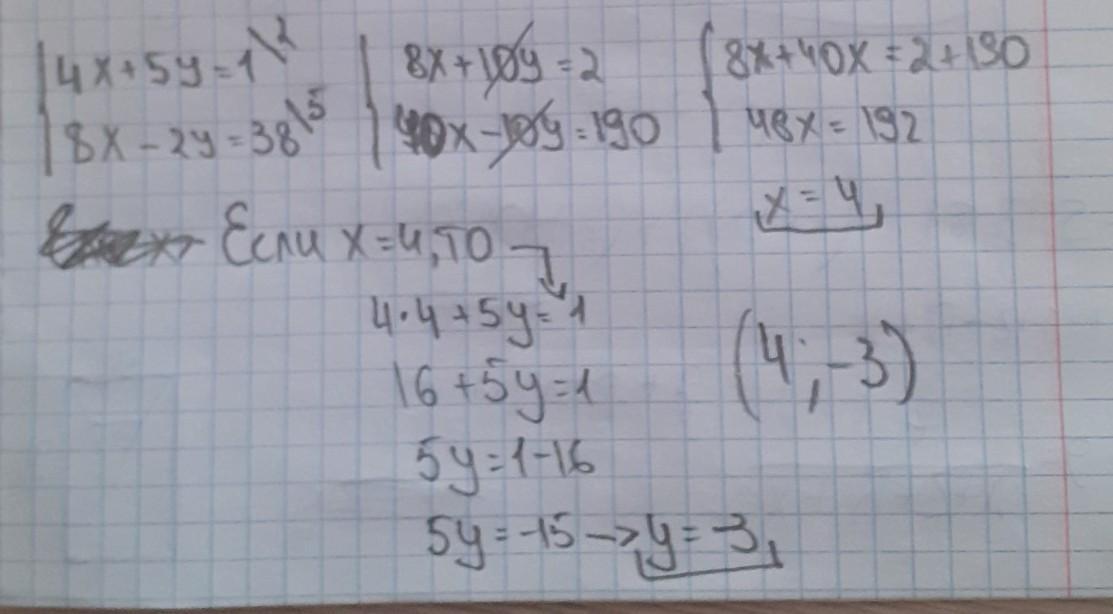 4x+5y=1\2
8x-2y=38\5
8x+10y=2
40x-10y=190
8x+40x=2+190
48x=192
x=4
Если x=4, то
4·4+5y=1
16+5y=1
5y=1-16
5y=-15→y=-3
(4;-3)